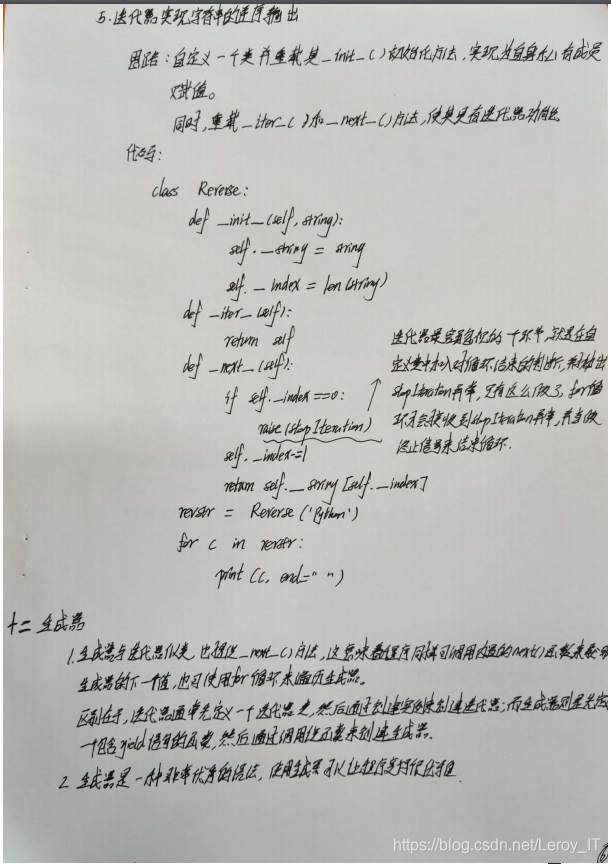 5. 迭代器实现字符串的逆序输出
思路：自定义一个类并重载其 _init_() 初始化方法，实现为自身私有成员
赋值。
同时，重载 _iter_() 和 _next_() 方法，使其具有迭代器功能
代码：
class Reverse:
def _init_(self, string):
self.__string = string
self.__index = len(string)
def _iter_(self):
return self
def _next_(self):
if self.__index==0:
raise(stopIteration)
self.__index-=1
return self.__string[self.__index]
revstr = Reverse('Python')
for c in revstr:
print(c, end=" ")
迭代器最容易忽视的一个环节，就是在自
定义类中加入对循环结束的判断，并抛出
stopIteration异常，只有这么做了，for循
环才会接收到stopIteration异常，并当做
终止信号来结束循环.
十二 生成器
1. 生成器与迭代器似类 也提供 _next_() 方法，这意味着程序同样可调用内置的next()函数来获取
生成器的下一个值，也可使用for循环来遍历生成器。
区别在于，迭代器通常先定义一个迭代器类，然后通过创建实例来创建迭代器；而生成器则是先定
一个包含yield语句的函数，然后通过调用该函数来创建生成器.
2. 生成器是一种非常优秀的语法，使用生成器可以让程序变得很优雅
https://blog.csdn.net/Leroy_IT